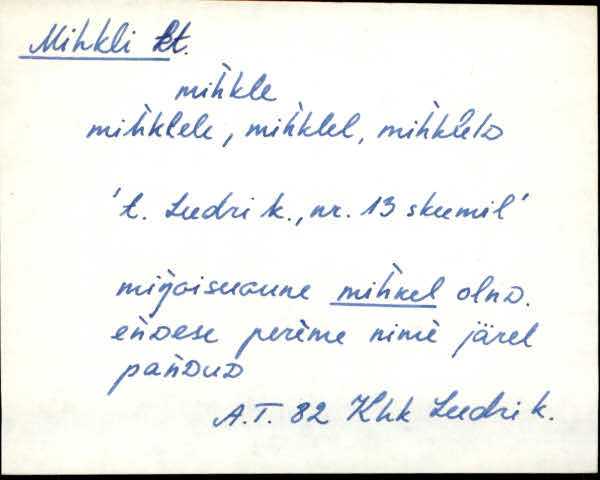 Mihkli kt.
mih̀kle
mih̀klele, mih̀klel, mih̀klelᴅ
't. Leedri k., nr. 13 skeemil'
mih̀kel olnᴅ.
eǹᴅese perème nimè järel
paǹᴅuᴅ
A.T. 82 Khk Leedri k.